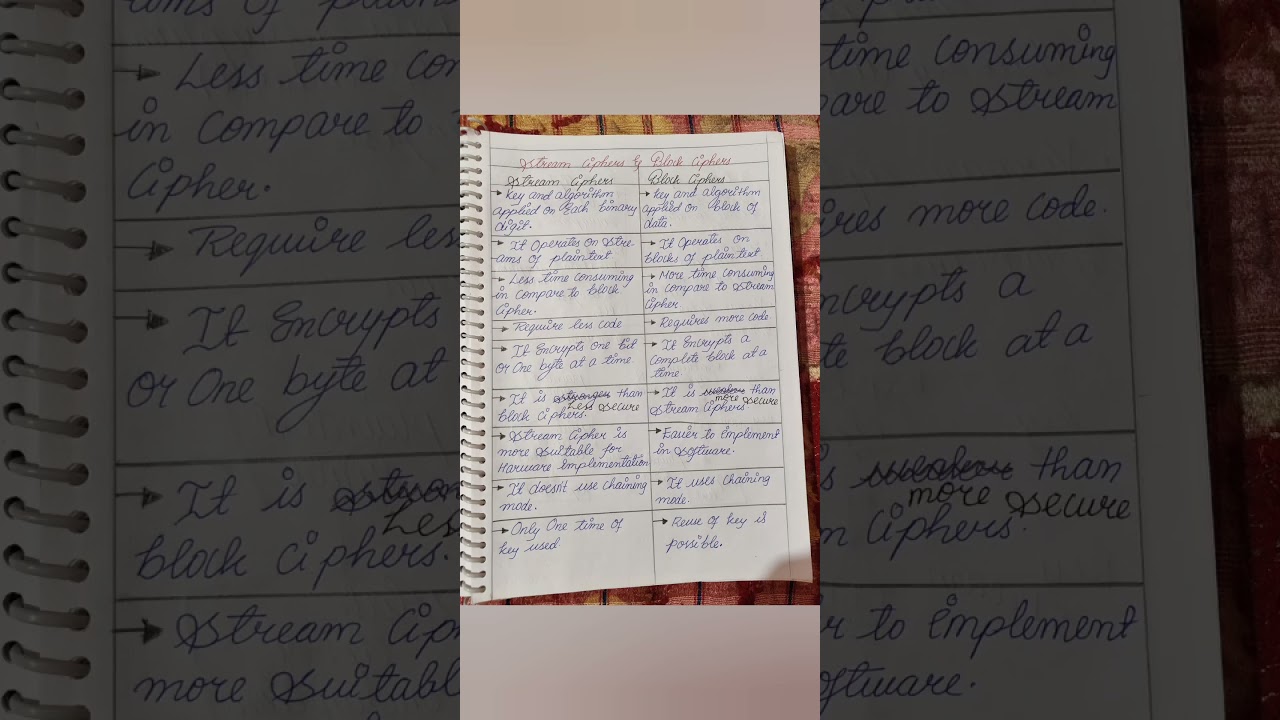 ams of plain
Less time con
in Compare to
Cipher.
Require les
It Encrypts
or One byte at
It is stron
Less
block Ciphers.
Stream Cip
more Suitabl
Stream Ciphers & Block Ciphers
Stream Ciphers
Block Ciphers
Key and algorithm
applied on Each binary
digit.
Key and algorithm
applied on block of
data.
It Operates on Stre-
ams of plaintext
It Operates on
blocks of plaintext
Less time Consuming
in Compare to block
Cipher.
More time Consuming
in Compare to Stream
Cipher
Require less code
Requires more Code
It Encrypts one bit
or One byte at a time.
It Encrypts a
Complete block at a
time.
It is stronger than
Less Secure
block Ciphers.
It is weaker than
more Secure
Stream Ciphers
Stream Cipher is
more Suitable for
Harware Implementation
Easier to implement
in Software.
It doesn't use chaining
mode.
It uses Chaining
mode.
Only One time of
key used
Reuse of key is
possible.
time Consuming
are to Stream
ires more Code.
ncrypts a
te block at a
s weaker than
more Secure
m Ciphers.
r to Implement
oftware.